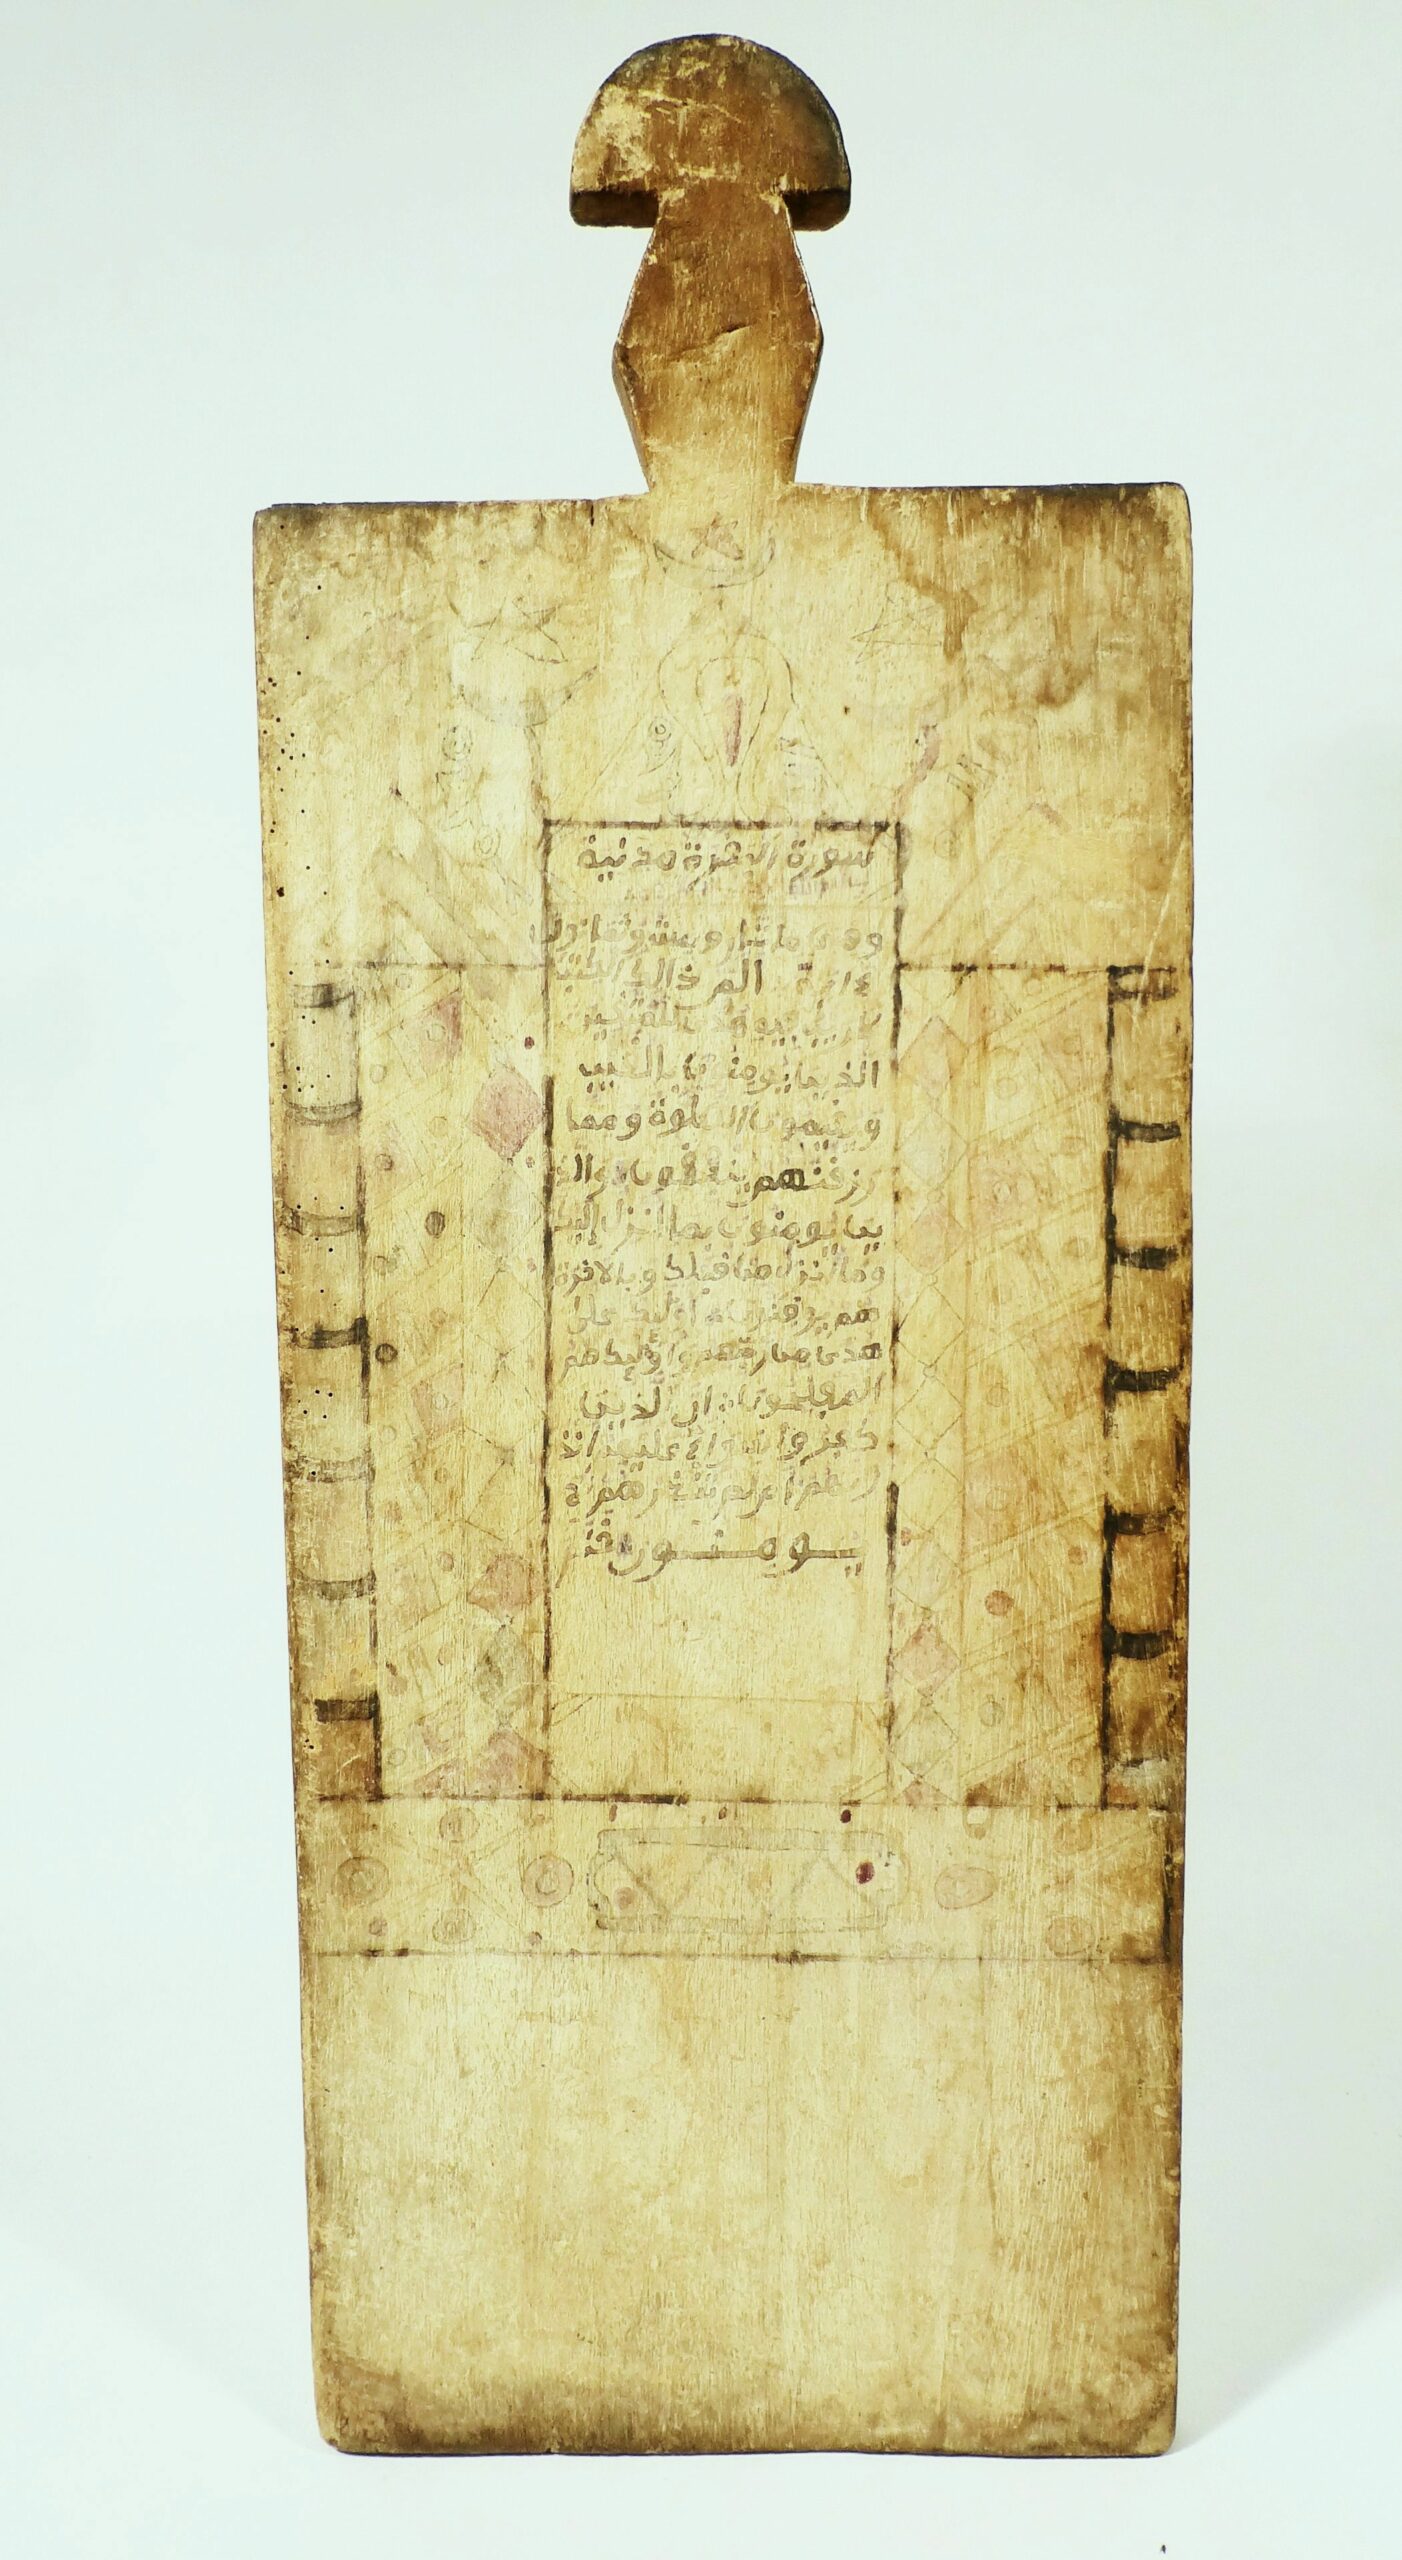 سورة البقرة مدنية
وهي ما
اية الم ذالك الكتب
ريب فيه هدى للمتقين
الذين يومنون بالغيب
ويقيمون الصلوة ومما
رزقنهم ينفقون والذ
ين يومنون بما انزل إليك
وما انزل من قبلك وبالاخرة
هم يوقنون اوليك على
هدى من ربهم واوليك هم
المفلحون ان الذين
كفروا سواء عليهم ءا
نذرتهم ام لم تنذرهم لا
يومنون